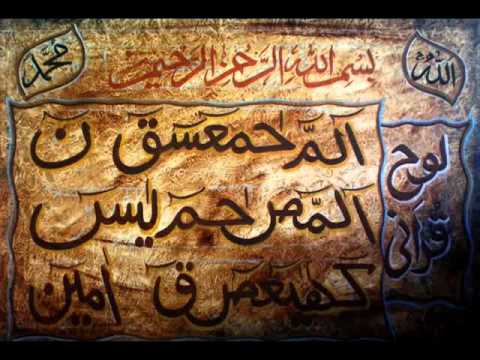 الله
بسم الله الرحمن الرحيم
محمد
لوح قرآنی
الٓمّٓ حٰمٓعٓسٓقٓ نٓ
الٓمّٓصٓ حٰمٓ یٰسٓ
كٓهٰیٰعٓصٓ قٓ اٰمین